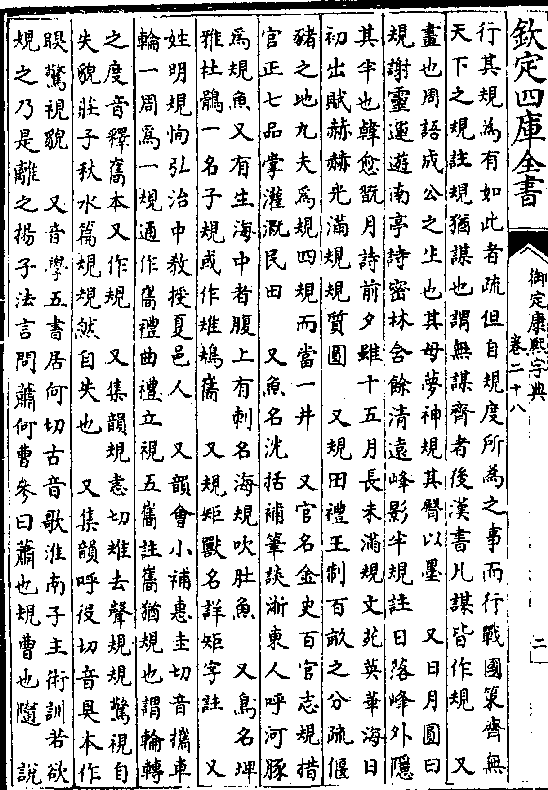 欽定四庫全書
御定康熙字典
卷二十八
二
行其規為有如此者疏但自規度所為之事而行戰國策齊無
天下之規註規猶謀也謂無謀齊者後漢書凡謀皆作規 又
畫也周語成公之生也其母夢神規其臀以墨 又日月圓曰
規謝靈運遊南亭詩密林含餘清遠峰影半規註日落峰外隱
其半也韓愈翫月詩前夕雖十五月長未滿規文苑英華海日
初出賦赫赫光滿規規質圓 又規田禮王制百畝之分疏偃
豬之地九夫為規四規而當一井 又官名金史百官志規措
官正七品掌灌漑民田 又魚名沈括補筆談浙東人呼河豚
為規魚又有生海中者腹上有刺名海規吹肚魚 又鳥名埤
雅杜鵑一名子規或作雉鳺巂 又規矩獸名詳矩字註 又
姓明規恂弘治中教授夏邑人 又韻會小補惠圭切音攜車
輪一周為一規通作巂禮曲禮立視五巂註巂猶規也謂輪轉
之度音釋巂本又作規 又集韻規恚切雉去聲規規驚視自
失貌莊子秋水篇規規然自失也 又集韻呼役切音瞁本作
瞁驚視貌 又音學五書居何切古音歌淮南子主術訓若欲
規之乃是離之揚子法言問蕭何曹參曰蕭也規曹也隨 說